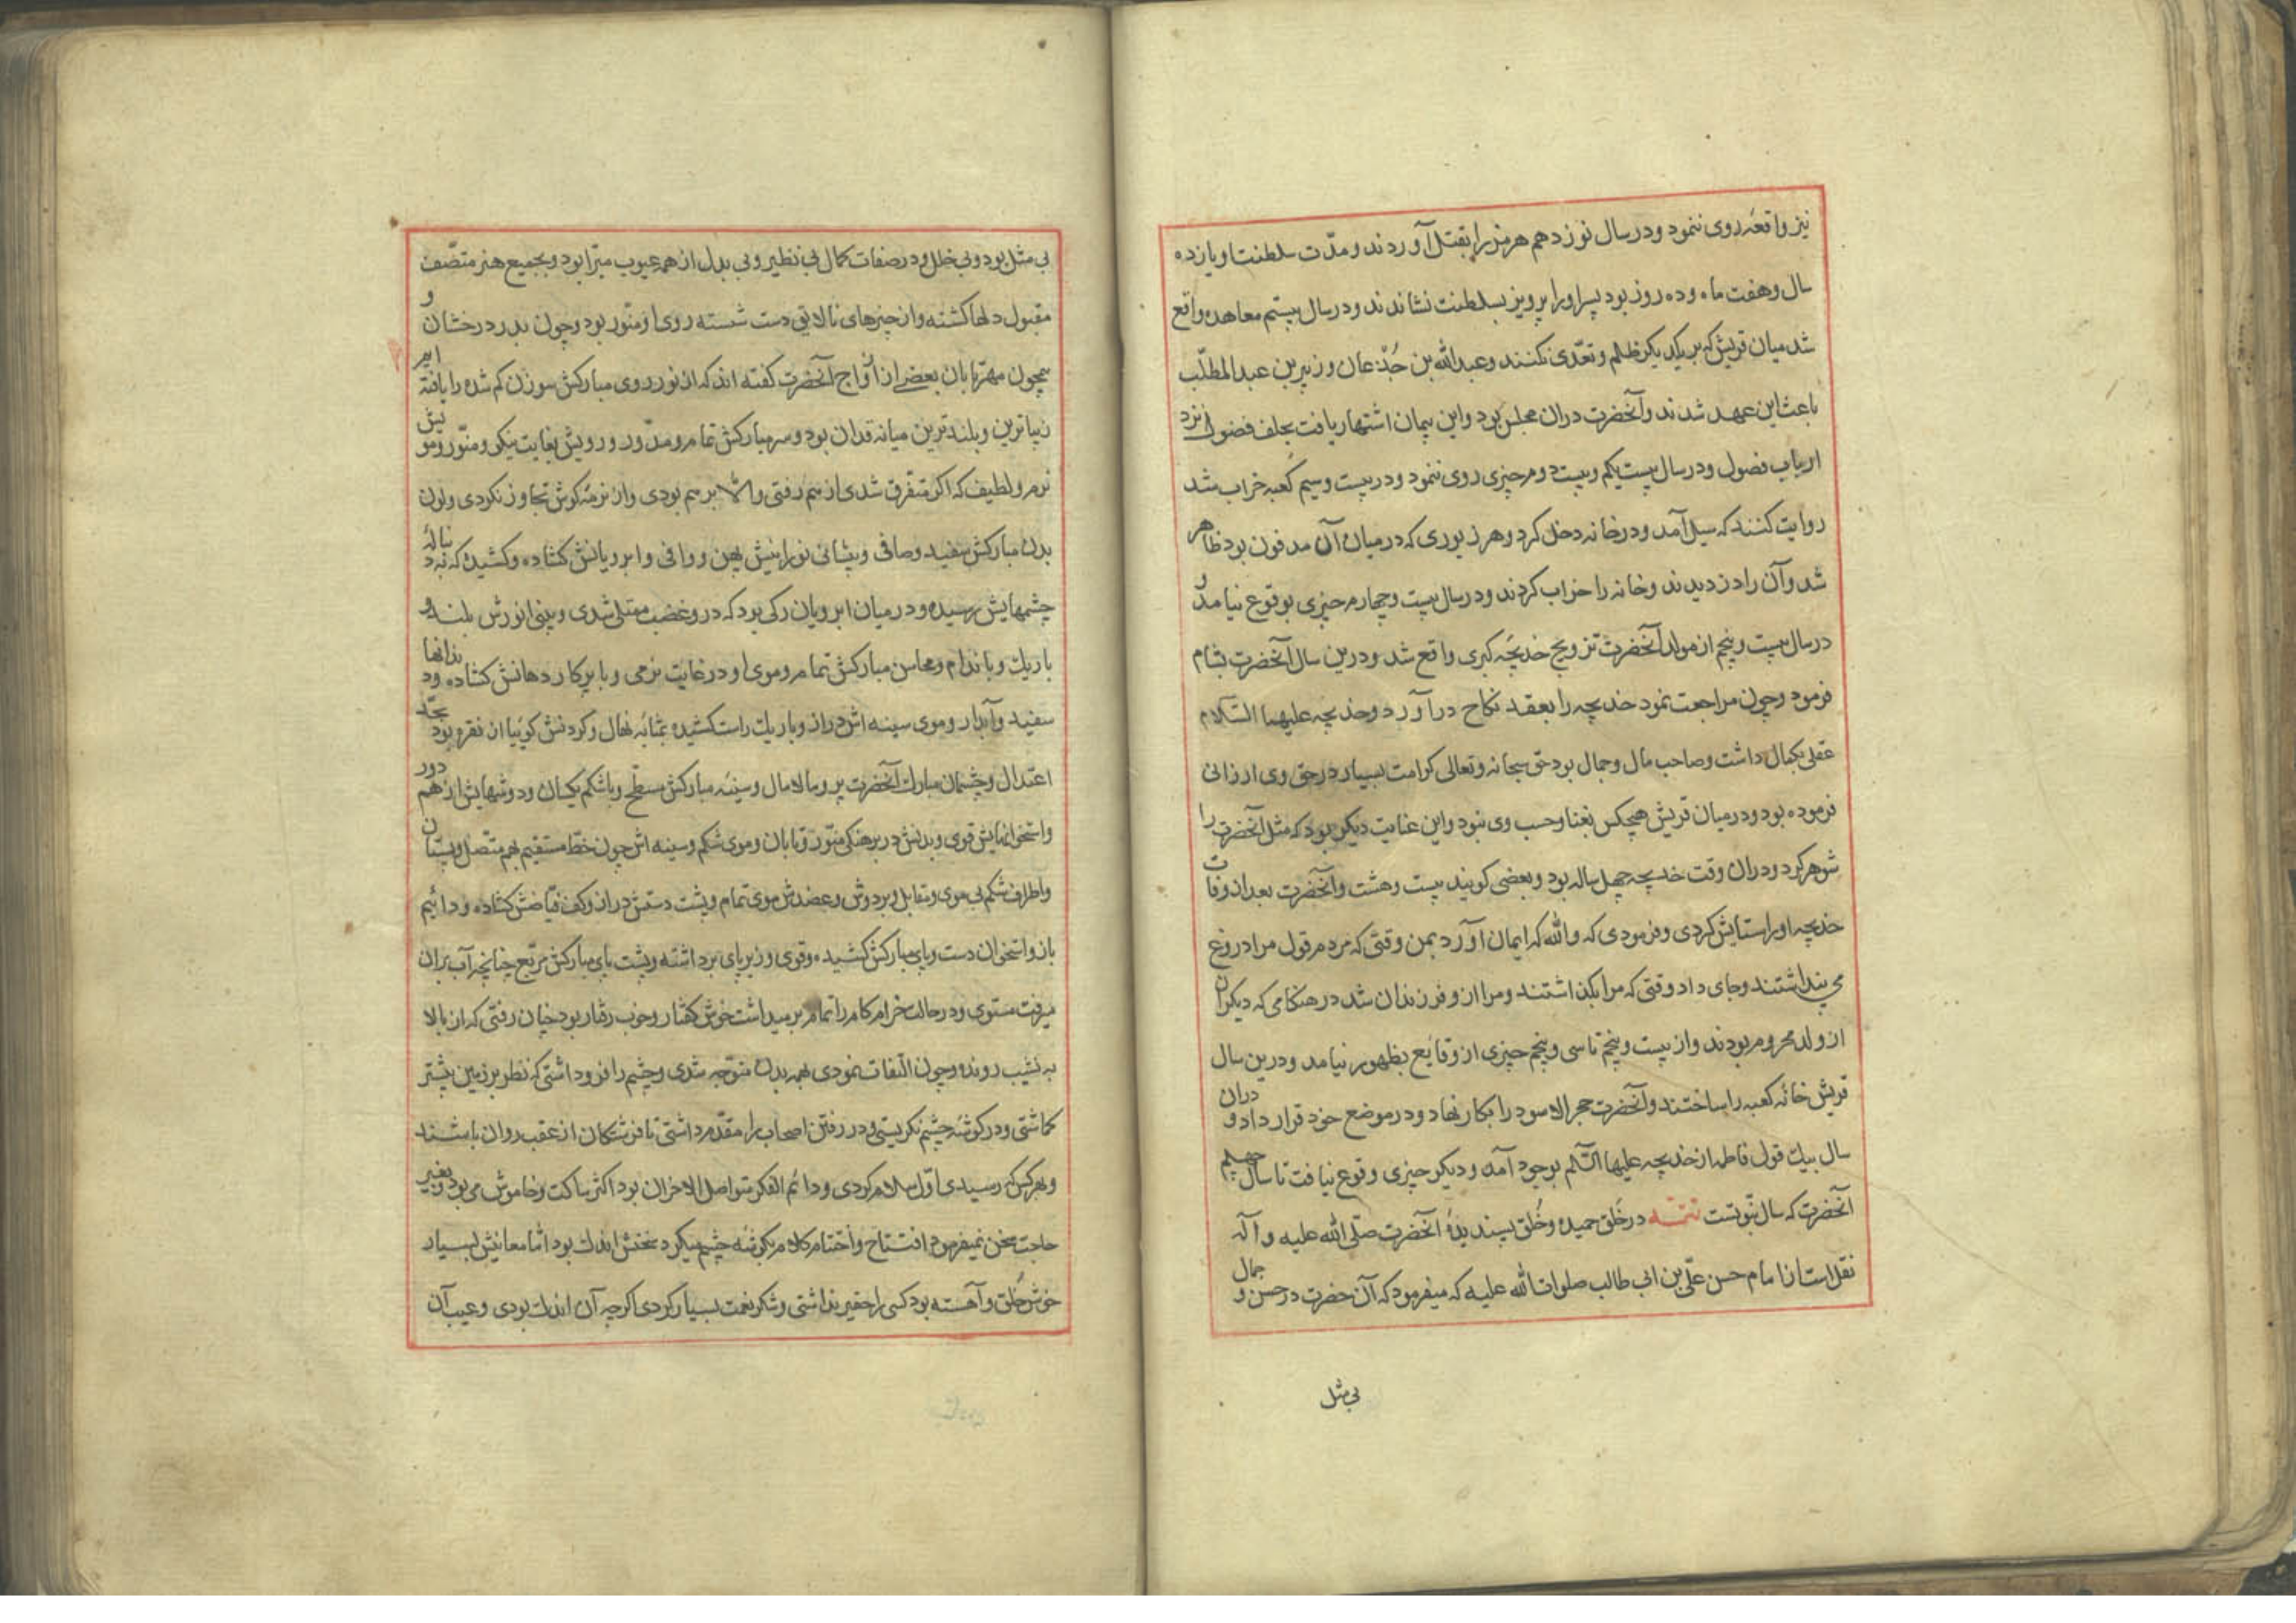 نیز واقعهٔ روی ننمود و در سال نوزدهم هرمز را بقتل آوردند و مدّت سلطنت او یازده
سال و هفت ماه و ده روز بود پسر او را پرویز بسلطنت نشاندند و در سال بیستم معاهده واقع
شد میان قریش که بر یکدیکر ظلم و تعدّی نکنند و عبدالله بن جُدْعان و زبیر بن عبدالمطلّب
باعث این عهد شدند و آنحضرت دران مجلس بود و این پیمان اشتهار یافت بحلف فضول نزد
ارباب فصول و در سال بیست یکم و بیست دوم چیزی روی ننمود و در بیست و سیم کعبه خراب شد
روایت کنند که سیل آمد و در خانه دخل کرد و هر زیوری که در میان آن مدفون بود ظاهر
شد و آن را دزدیدند و خانه را خراب کردند و در سال بیست و چهارم چیزی بوقوع نیامد و
در سال بیست و پنجم از مولد آنحضرت تزویج خدیجهٔ کبری واقع شد و درین سال آنحضرت بشام
فرمود و چون مراجعت نمود خدیجه را بعقد نکاح درآورد و خدیجه علیهما السّلام
عقلی بکمال داشت و صاحب مال و جمال بود حق سبحانه و تعالی کرامت بسیار در حق وی ارزانی
فرموده بود و در میان قریش هیچکس بغنا و حسب وی نبود و این عنایت دیکر بود که مثل آنحضرت را
شوهر کرد و دران وقت خدیجه چهل ساله بود و بعضی کویند بیست و هشت و آنحضرت بعد از وفات
خدیجه او را ستایش کردی و فرمودی که والله که ایمان آورد بمن وقتی که مردم قول مرا دروغ
می پنداشتند و جای داد وقتی که مرا بکذاشتند و مرا از و فرزندان شد در هنکامی که دیکران
از ولد محروم بودند و از بیست و پنجم تا سی و پنجم چیزی از وقایع بظهور نیامد و درین سال
قریش خانهٔ کعبه را ساختند و آنحضرت حجر الاسود را بکار نهاد و در موضع خود قرار داد و دران
سال بیک قول فاطمه از خدیجه علیها السّلم بوجود آمد و دیکر چیزی وقوع نیافت تا سال چهلم
آنحضرت که سال نبّوتست تتمــه در خَلق حمیده و خُلق پسندیدهٔ آنحضرت صلّی الله علیه و آله
نقل است از امام حسن علّی بن ابی طالب صلوات الله علیه که میفرمود که آن حضرت در حسن و جمال
بی مثل
بی مثل بود و بی خلل و در صفات کمال بی نظیر و بی بدل از همه عیوب مبرّا بود و بجمیع هنر متّصف
مقبول دلها کشته و از چیزهای نالایق دست شسته روی او منوّر بود و چون بدر درخشان و
همچون مهر تابان بعضی از ازواج آنحضرت کفته اند که از نور روی مبارکش سوزن کم شده را یافته ایم
زیباترین و بلندترین میانه قدان بود و سر مبارکش تمام و مدوّر و رویش بغایت نیکو و منوّر و مویش
نرم و لطیف که اکر متفرق شدی از هم رفتی والّا بر هم بودی و از نرمهٔ کوش تجاوز نکردی و لون
بدن مبارکش سفید و صافی و پیشانی نورانیش پهن و وافی و ابرویانش کشاده و کشیده که بدنبالهٔ
چشمهایش رسیده و در میان ابرویان رکی بود که در وغضب ممتلی شدی و بینی انورش بلند و
باریک و باندام و محاسن مبارکش تمام و موی او در غایت نرمی و با پرکار دهانش کشاده و دندانها
سفید و آبدار و موی سینه اش دراز و باریک راست کشیده بمثابهٔ نهال و کردنش کوئیا از نقره بود بحدّ
اعتدال و چشمان مبارک آنحضرت پر و مالامال و سینهٔ مبارکش مسطّح و باشکم یکسان و دوشهایش از هم دور
و استخوانهایش قوی و بدنش در برهنکی منوّر و تابان و موی شکم و سینه اش چون خطّ مستقیم بهم متّصل و پستان
و اطراف شکم بی موی و متقابل و بر دوش و عضدش موی تمام و پشت دستش دراز و کف فیّاضش کشاده و دائیم
باز و استخوان دست و پای مبارکش کشیده و قوی و زیر پای برداشته و پشت پای مبارکش مربّع چنانچه آب بران
میرفت مستوی و در حالت خرام کام را تمام بر میداشت خوش کفتار و خوب رفتار بود چنان رفتی که از بالا
به نشیب روند و چون التفات نمودی بهمه بدن متوّجه شدی و چشم را فرو داشتی که نظر بر زمین بیشتر
کماشتی و در کوشهٔ چشم نکریستی و در رفتن اصحاب را مقدّم داشتی تا فرشتکان از عقب روان باشند
و بهر کس که رسیدی اوّل سلام کردی و دائم الفکر متواصل الاحزان بود اکثر ساکت و خاموش می بود و بغیر
حاجت سخن نمیفرمود افتتاح و اختتام کلام بکوشهٔ چشم میکرد سخنش اندک بود امّا معانیش بسیار
خوش خُلق و آهسته بود کسی را حقیر نداشتی و شکر نعمت بسیار کردی اکرچه آن اندک بودی و عیب آن